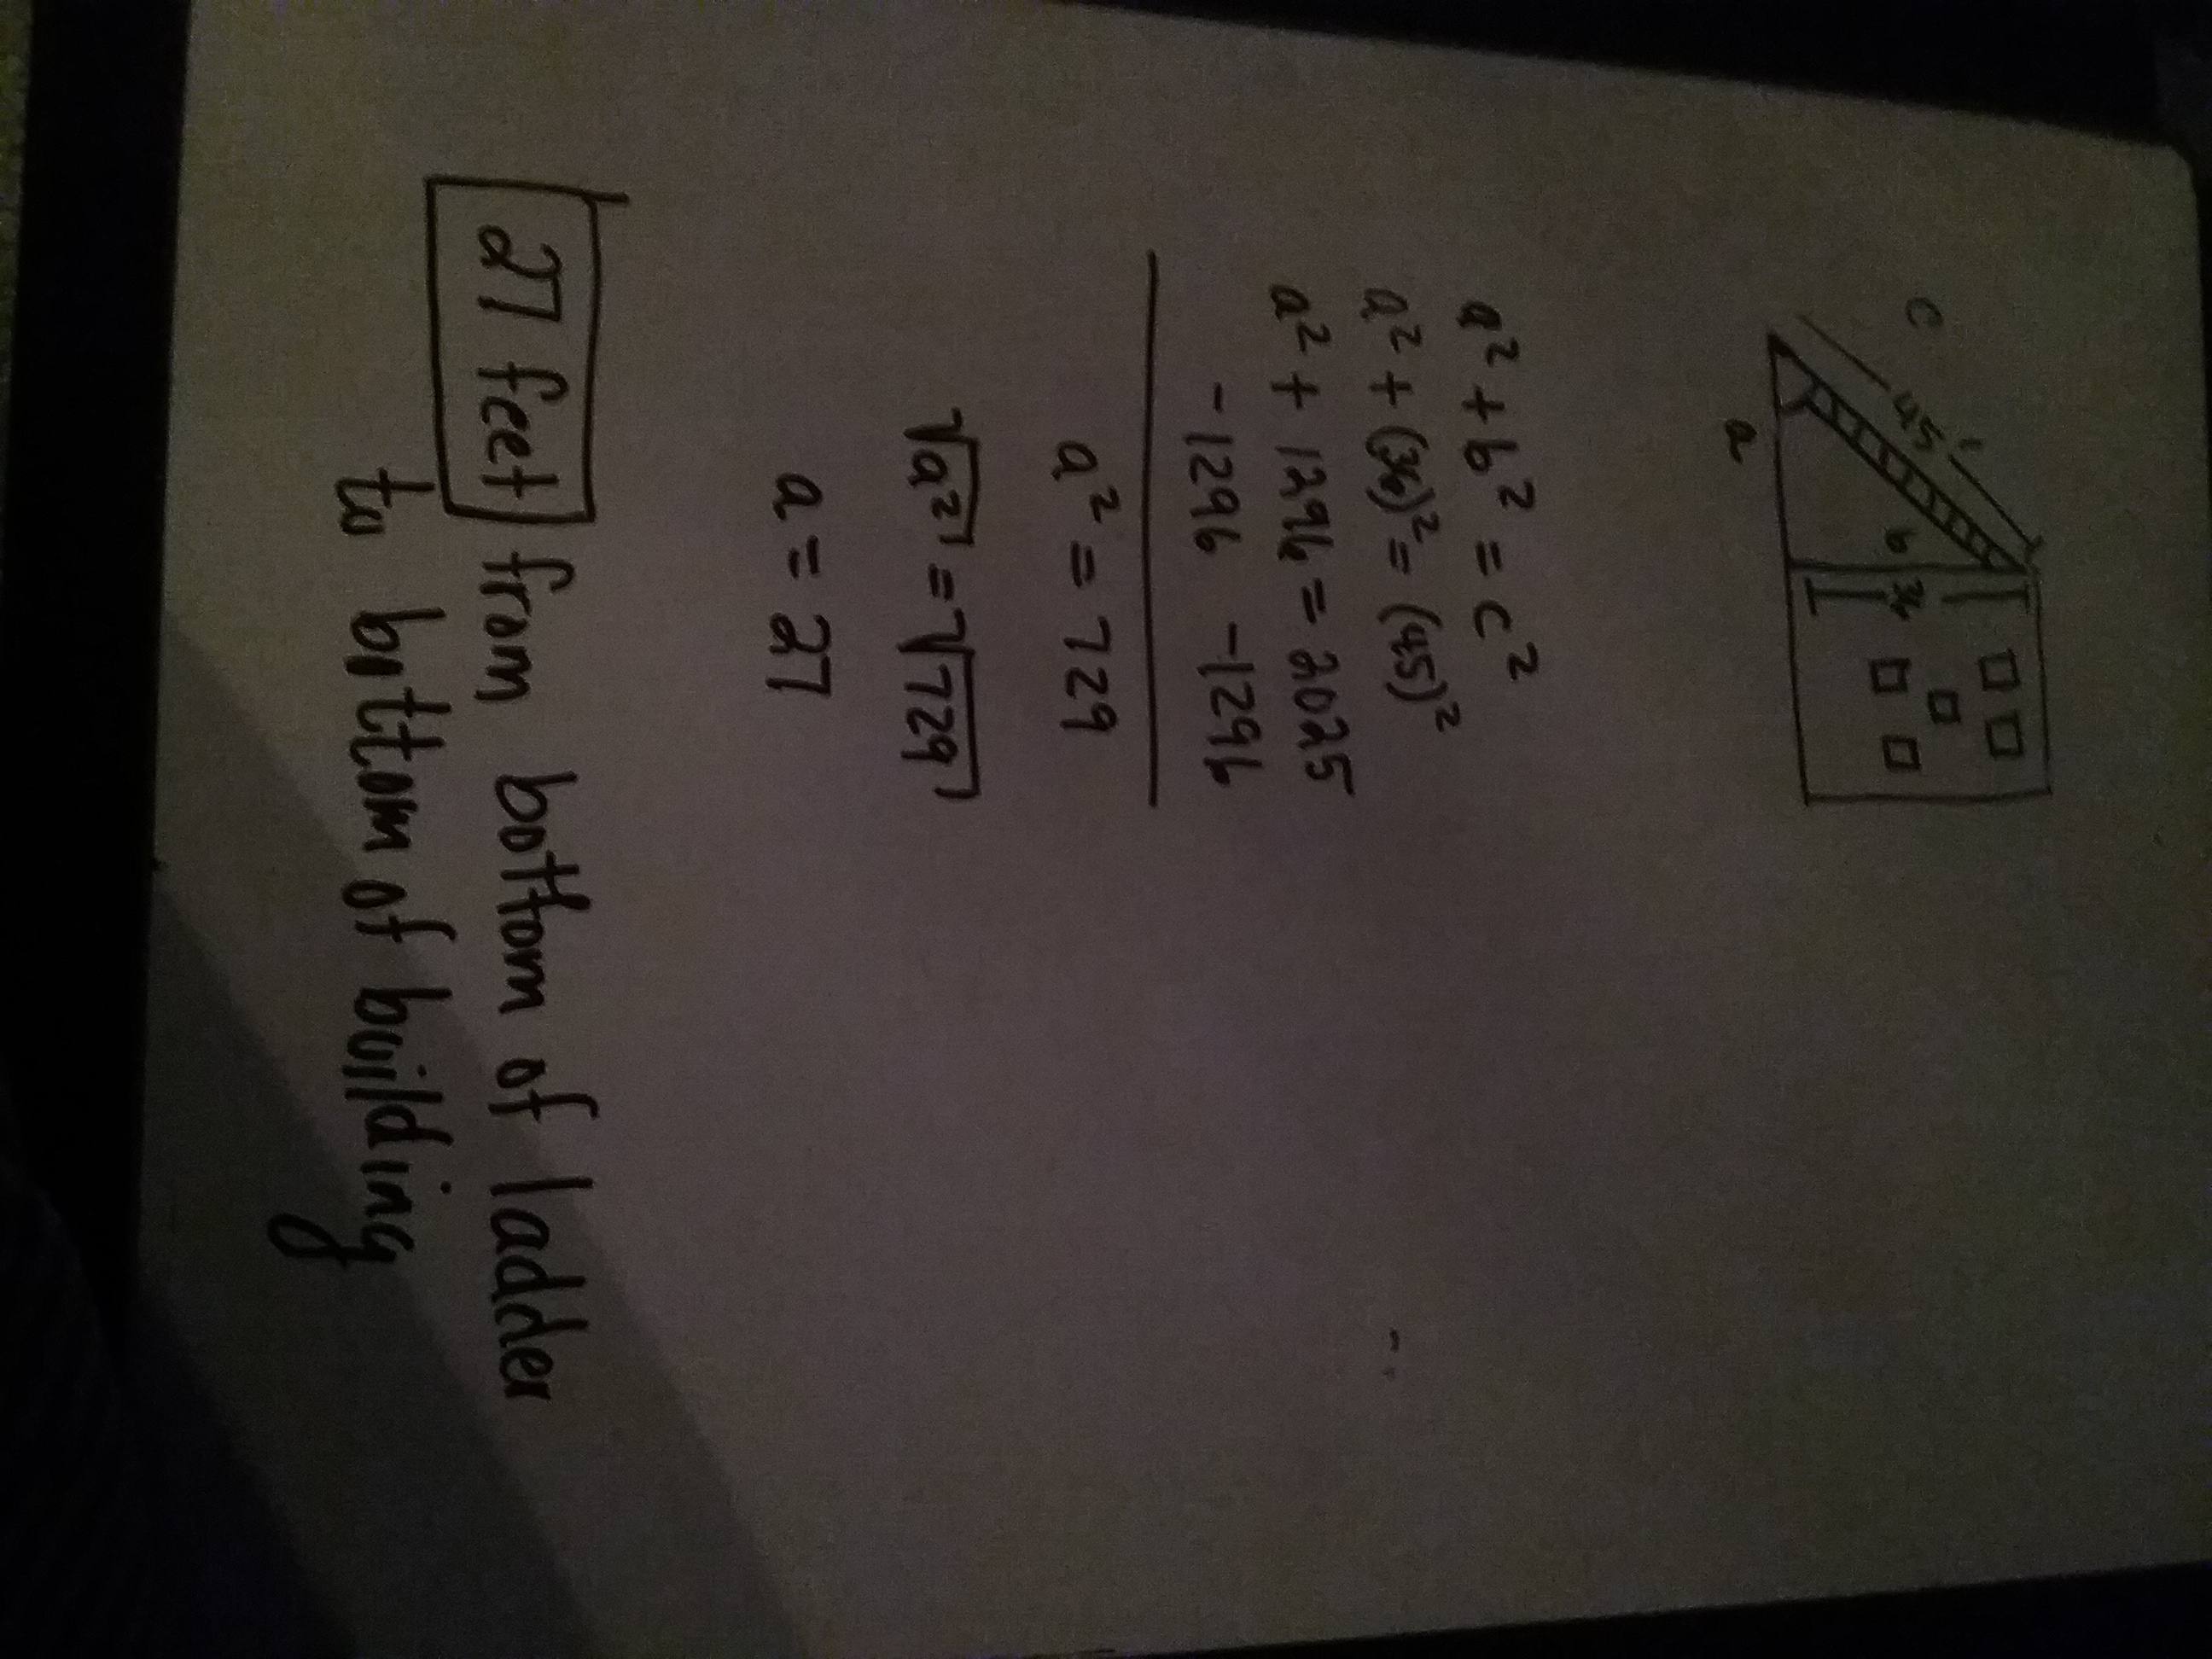 c
45'
b
36
a
a² + b² = c²
a² + (36)² = (45)²
a² + 1296 = 2025
-1296 -1296
a² = 729
√a² = √729
a = 27
27 feet from bottom of ladder
to bottom of building